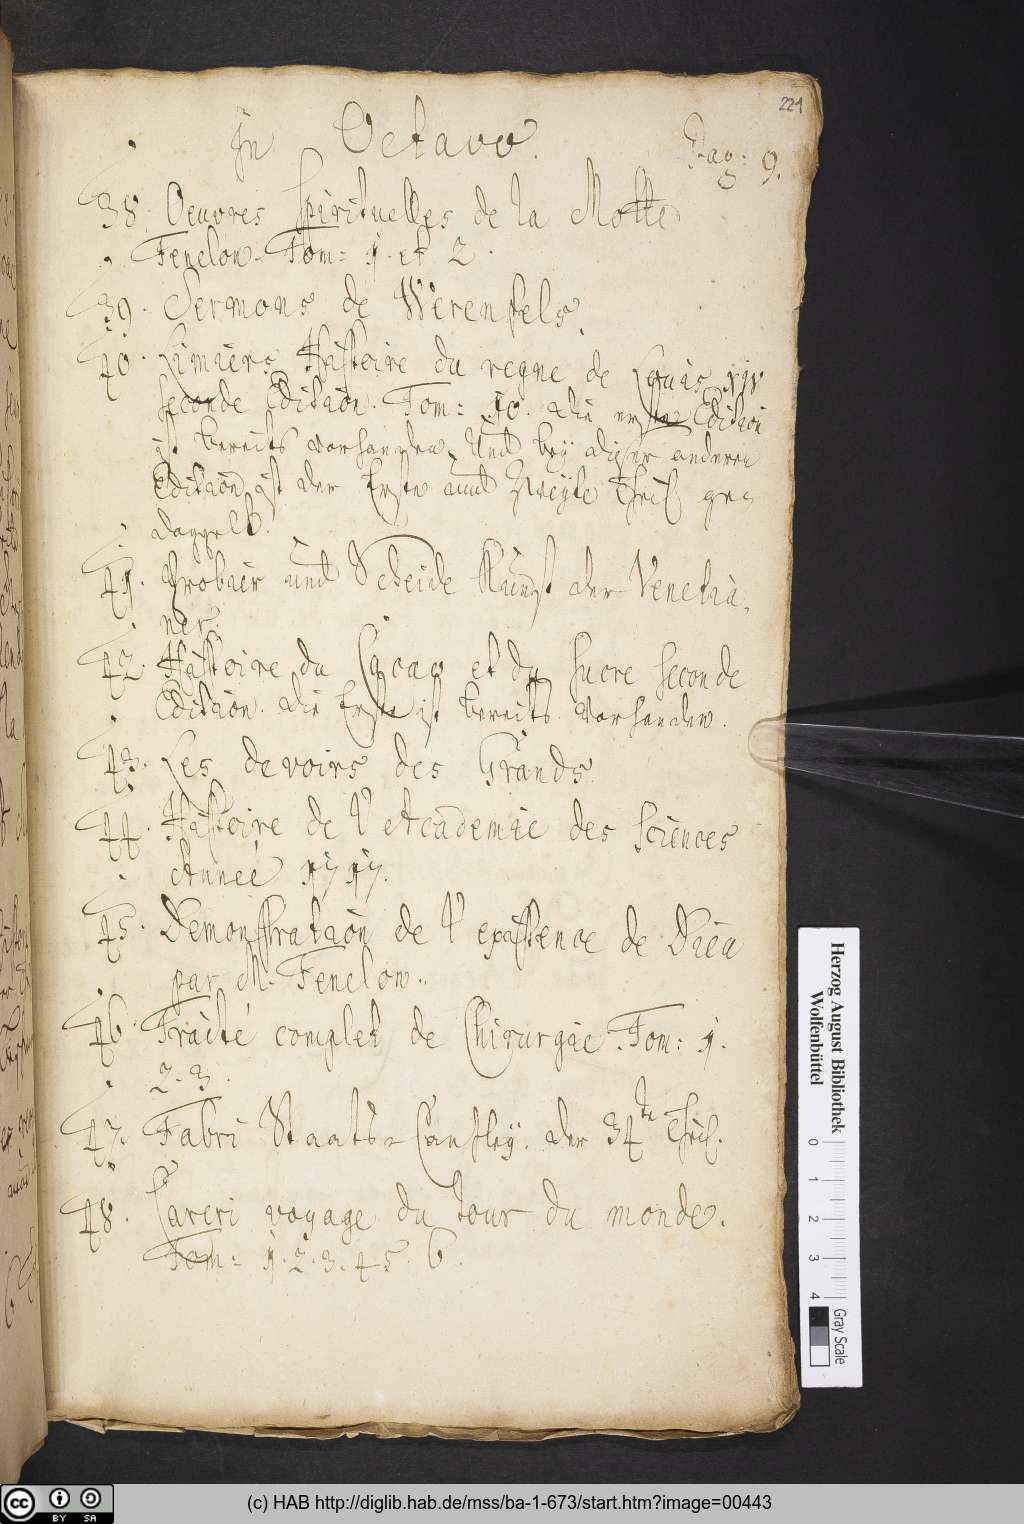 221
In Octavo.
Pag: 9.
38. Oeuvres Spirituelles de la Motte
Fenelon. Tom: 1. et 2.
39. Sermons de Werenfels.
40. Limiers Histoire du regne de Louis XIV
seconde Edition. Tom: 10. die erste Edition
ist bereits vorhanden, Und bey dieser anderen
Edition ist der Erste und Zweyte Theil
doppelt.
41. Probier und Scheide Kunst der Venetia,
ner.
42. Histoire du Cacao et du sucre seconde
Edition. die Erste ist bereits vorhanden.
43. Les devoirs des Grands.
44. Histoire de l'Academie des Sciences
Année 1717.
45. Demonstration de l'existence de Dieu
par M. Fenelon.
46. Traité complet de Chirurgie. Tom: 1.
2. 3.
47. Fabri Staats-Cantzley. der 34te Theil.
48. Careri voyage du tour du monde.
Tom: 1. 2. 3. 4. 5. 6.
Herzog August Bibliothek
Wolfenbüttel
0 1 2 3 4
Gray Scale
cc BY SA
(c) HAB http://diglib.hab.de/mss/ba-1-673/start.htm?image=00443